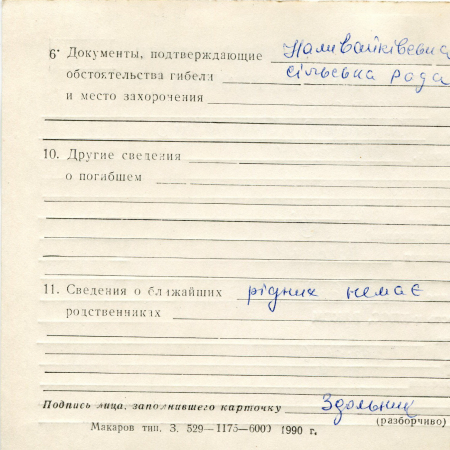 6· Документы, подтверждающие Наливайківська
обстоятельства гибели сільська рада
и место захоронения
10. Другие сведения
о погибшем
11. Сведения о ближайших рідних немає
родственниках
Подпись лица, заполнившего карточку Здольник
(разборчиво)
Макаров тип. З. 529—1175—6000 1990 г.